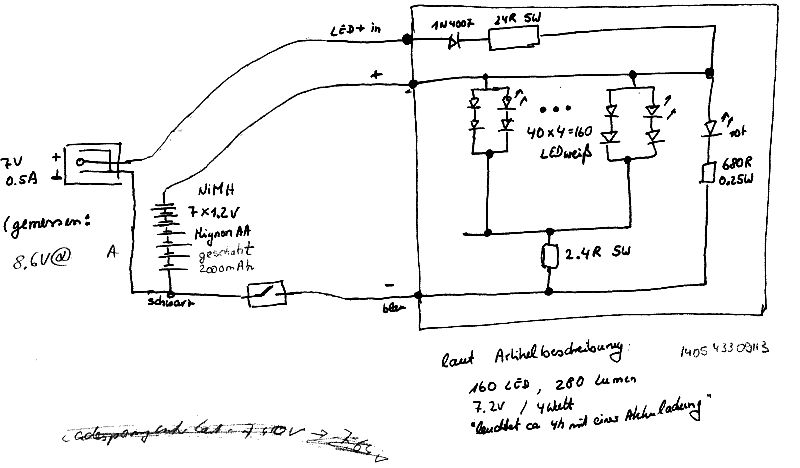 LED+ in
1N4007
24R 5W
+
-
7V
0.5A
+
⊥
(gemessen:
8.6V@ A
NiMH
7 x 1.2V
Mignon AA
geschätzt
2000mAh
schwarz
40 x 4 = 160
LED weiß
rot
680R
0.25W
2.4R 5W
-
blau
laut Artikelbeschreibung:
160 LED, 280 Lumen
7.2V / 4Watt
"leuchtet ca 4h mit einer Akkuladung"